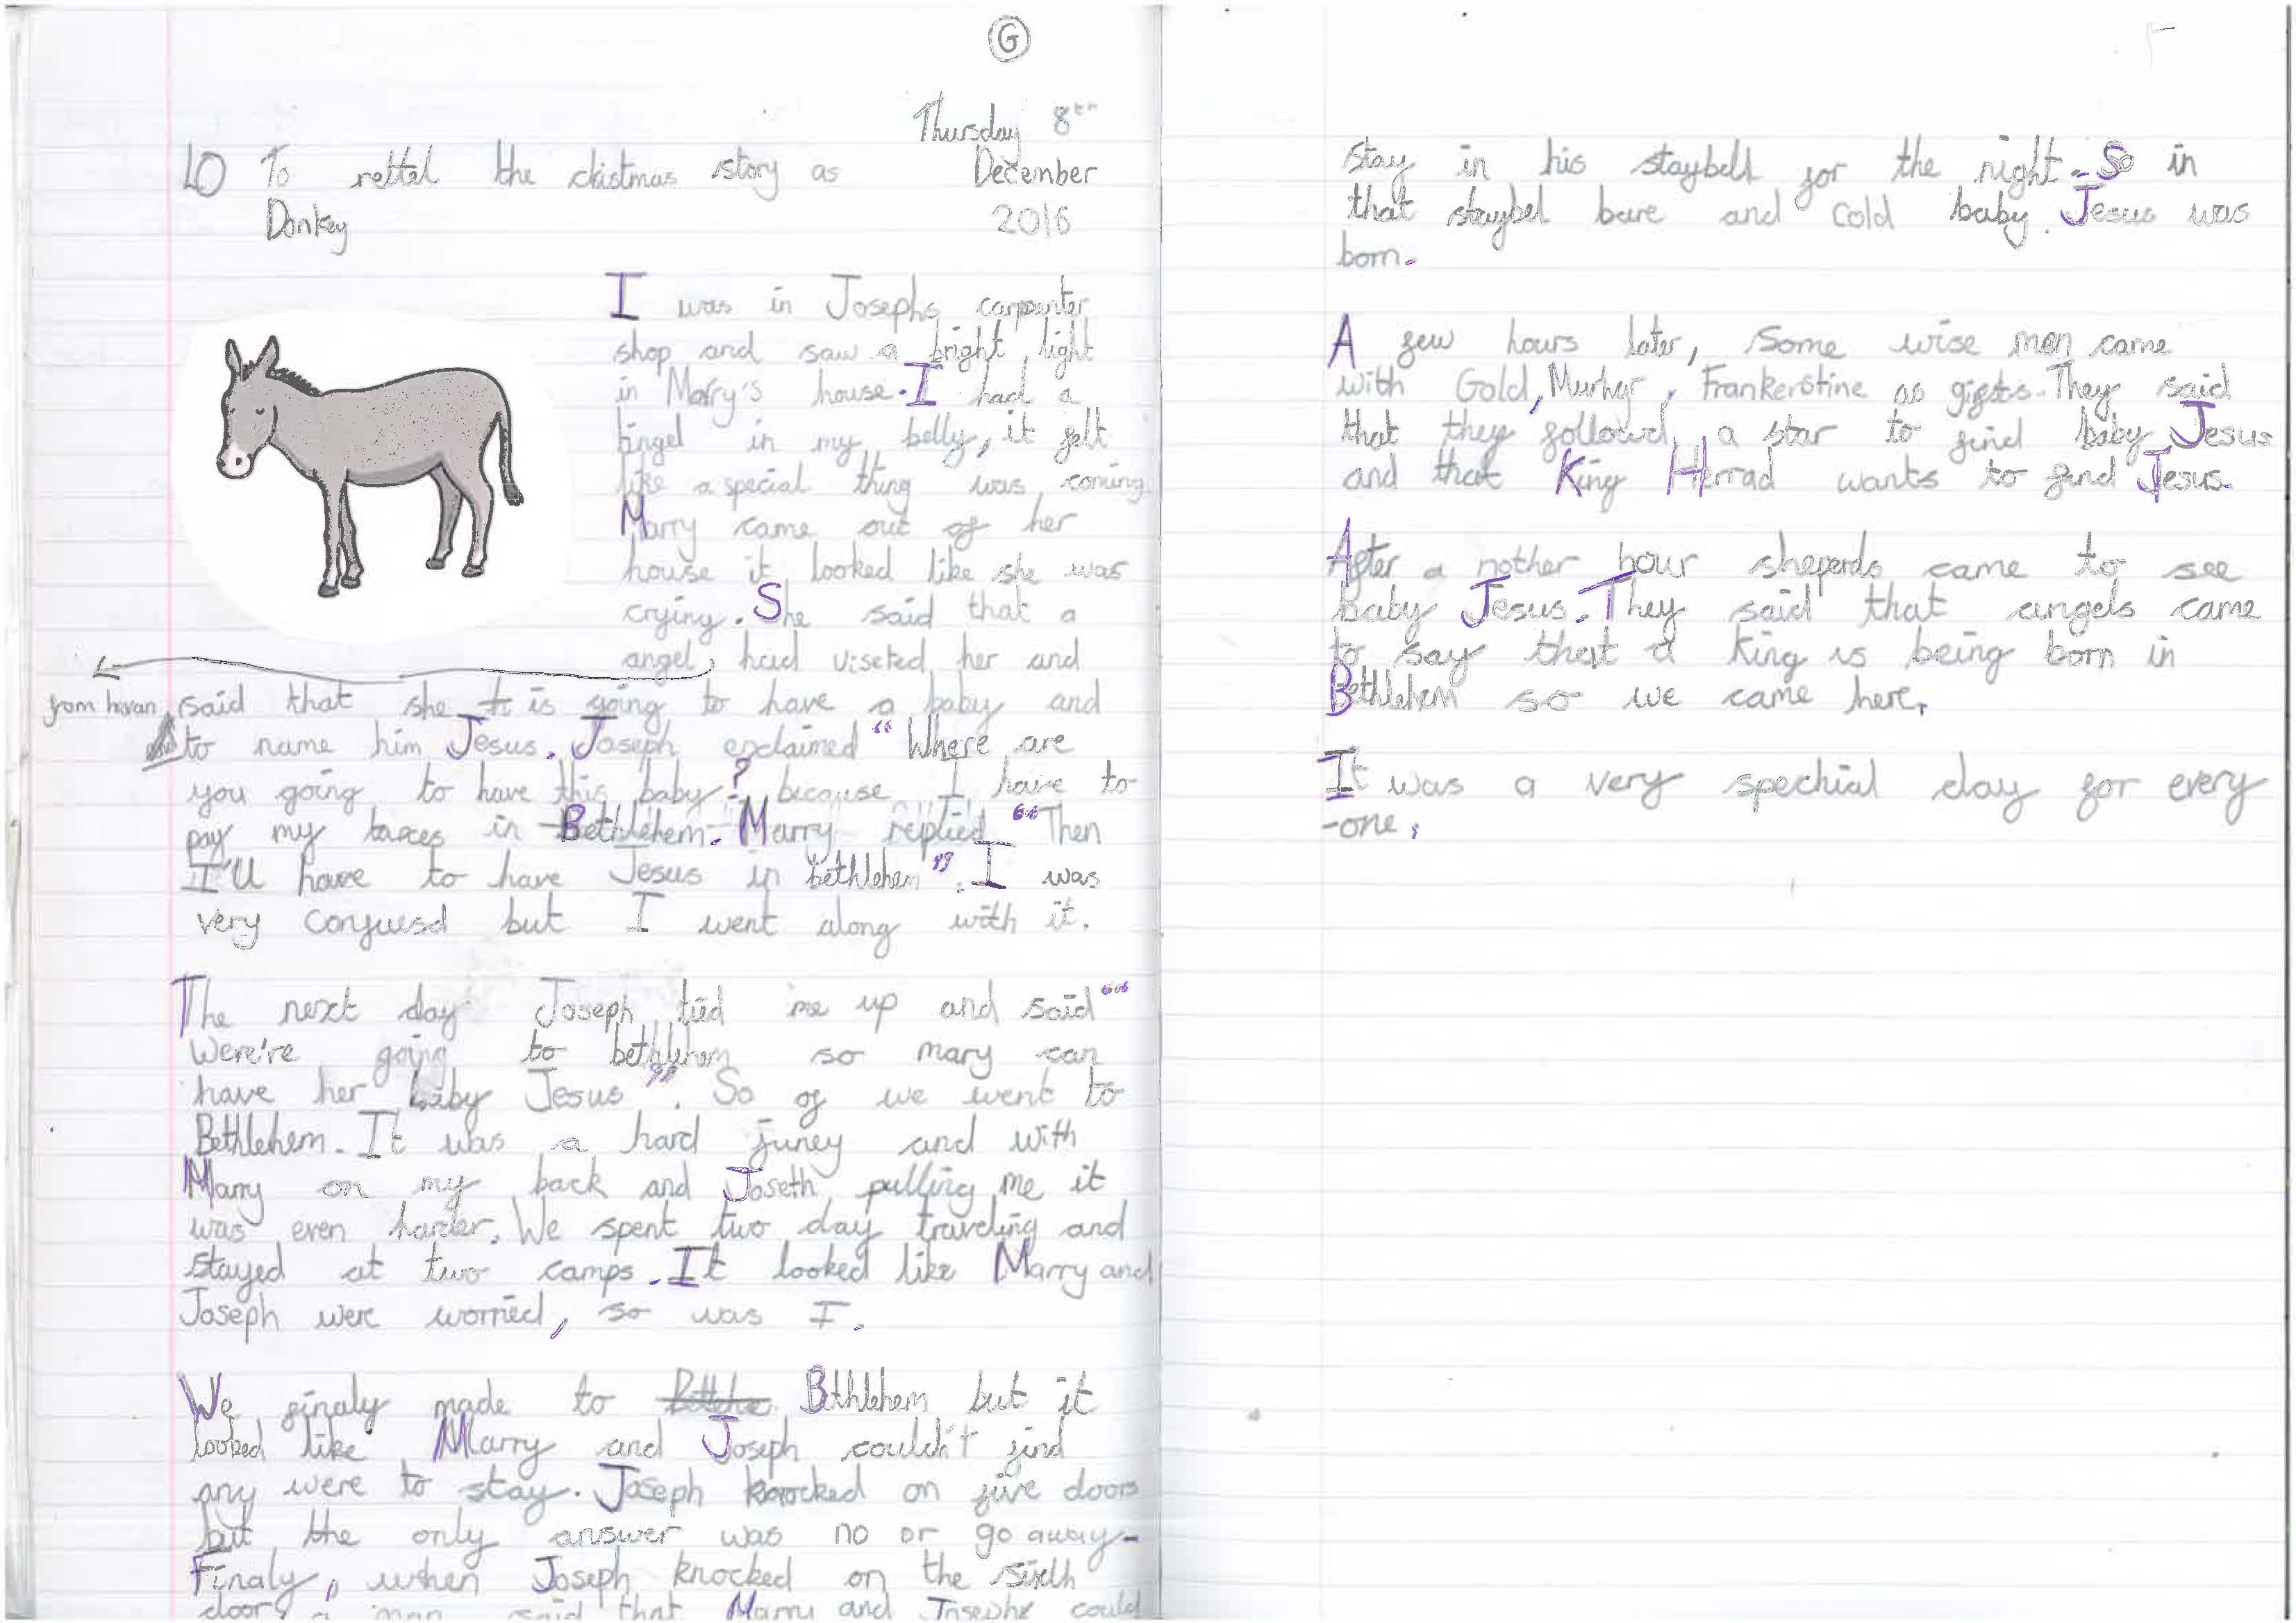 G
Thursday 8th
December
2016
LO To rettel the ckistmas story as
Donkey
I was in Josephs carpenter
shop and saw a bright light
in Marry's house. I had a
tingel in my belly, it felt
like a special thing was coming.
Marry came out of her
house it looked like she was
crying. She said that a
angel had viseted her and
from hevan said that she is going to have a baby and
to name him Jesus. Joseph exclaimed “Where are
you going to have this baby? because I have to
pay my taxes in Bethlehem. Marry replied “Then
I'll have to have Jesus in bethlehem”. I was
very confuesd but I went along with it.
The next day Joseph tied me up and said “
Were're going to bethlehem so mary can
have her baby Jesus”. So of we went to
Bethlehem. It was a hard juney and with
Marry on my back and Joseth pulling me it
was even harder. We spent two day traveling and
stayed at two camps. It looked like Marry and
Joseph were worried, so was I.
We finaly made to Bethlehem but it
looked like Marry and Joseph couldn't find
any were to stay. Joseph knocked on five doors
but the only answer was no or go away.
Finaly, when Joseph knocked on the sixth
door a man said that Marry and could
stay in his staybell for the night. So in
that staybel bare and cold baby Jesus was
born.
A few hours later, Some wise men came
with Gold, Frankerstine as gifts. They said
that they followd a star to find baby Jesus
and that King Herrad wants to find Jesus.
After a nother hour sheperds came to see
baby Jesus. They said that angels came
to say that a King is being born in
Bethlehem so we came here.
It was a very spechial day for every
-one.